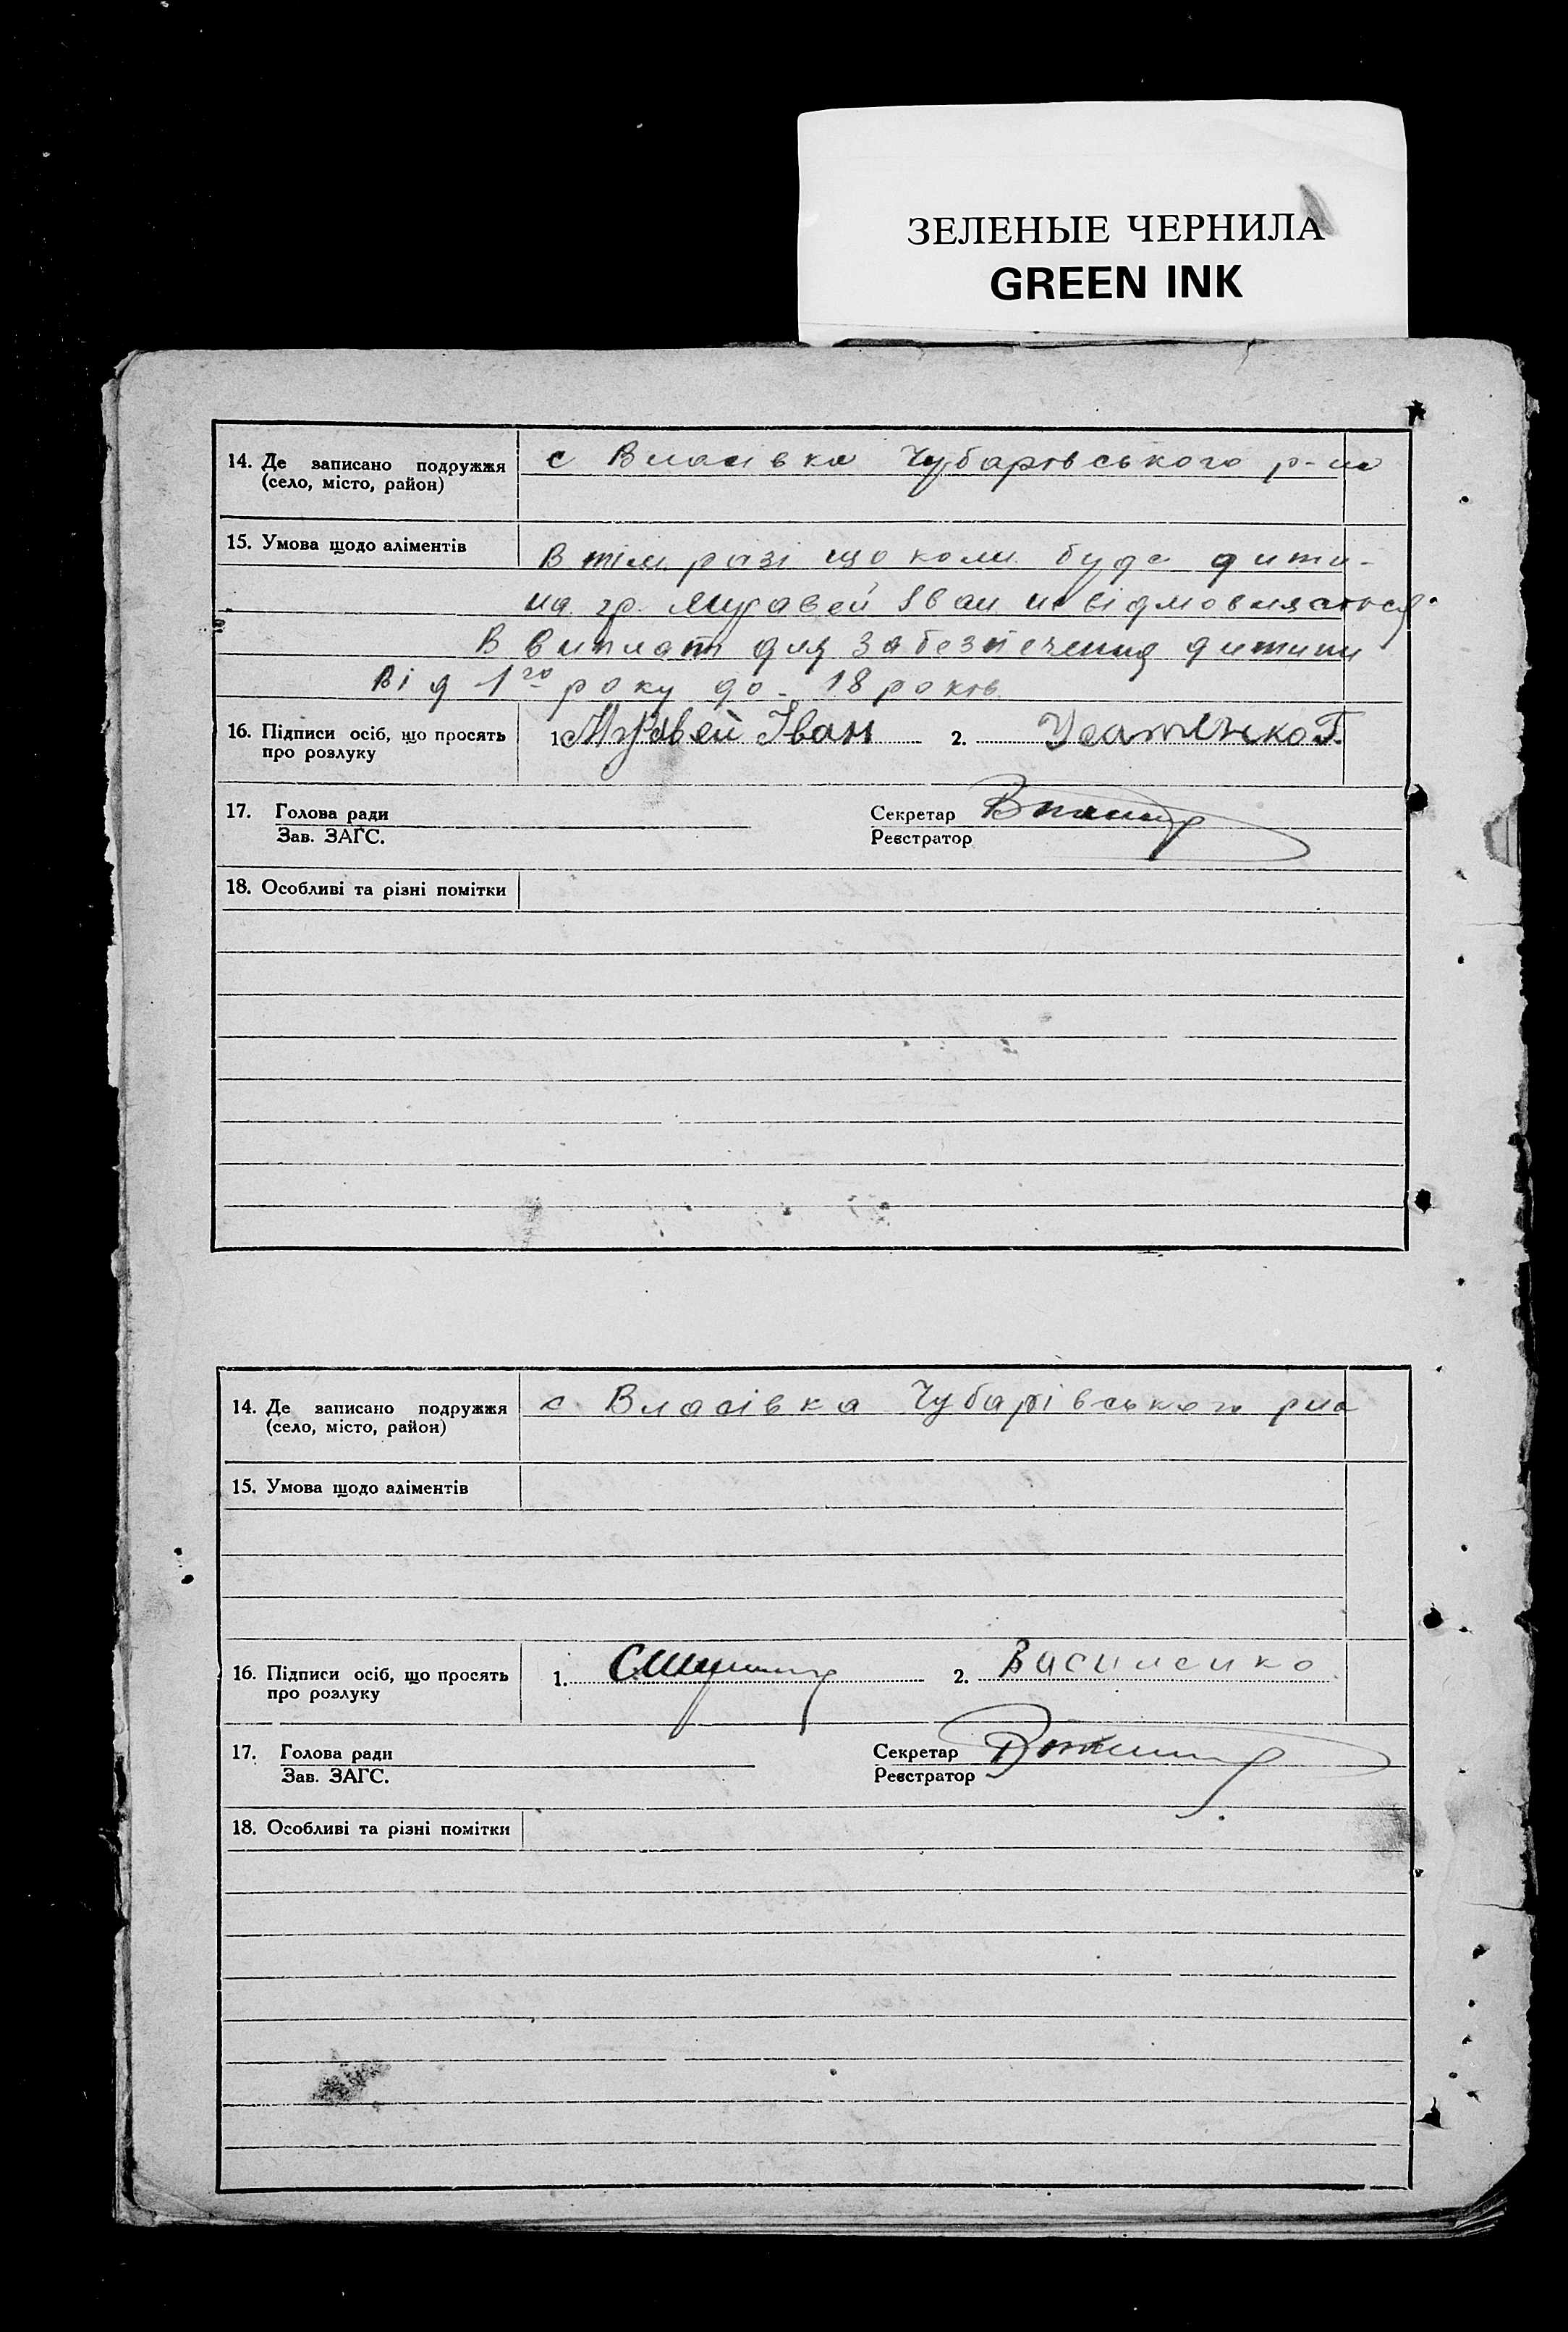 ЗЕЛЕНЫЕ ЧЕРНИЛА
GREEN INK
14. Де записано подружжя
(село, місто, район)
с Власівка Чубарівського р-на
15. Умова щодо аліментів
В тім разі що коли буде дити-
на гр. Муравей Іван не відмовляється
В виплаті для забезпечення дитини
Від 1го року до - 18 років
16. Підписи осіб, що просять
про розлуку
1. Муравей Іван 2. Усатенко Г.
17. Голова ради Секретар
Зав. ЗАГС. Реєстратор
18. Особливі та різні помітки
14. Де записано подружжя
(село, місто, район)
с. Власівка Чубарівського рна
15. Умова щодо аліментів
16. Підписи осіб, що просять
про розлуку
1. 2. Василенко
17. Голова ради Секретар
Зав. ЗАГС. Реєстратор
18. Особливі та різні помітки